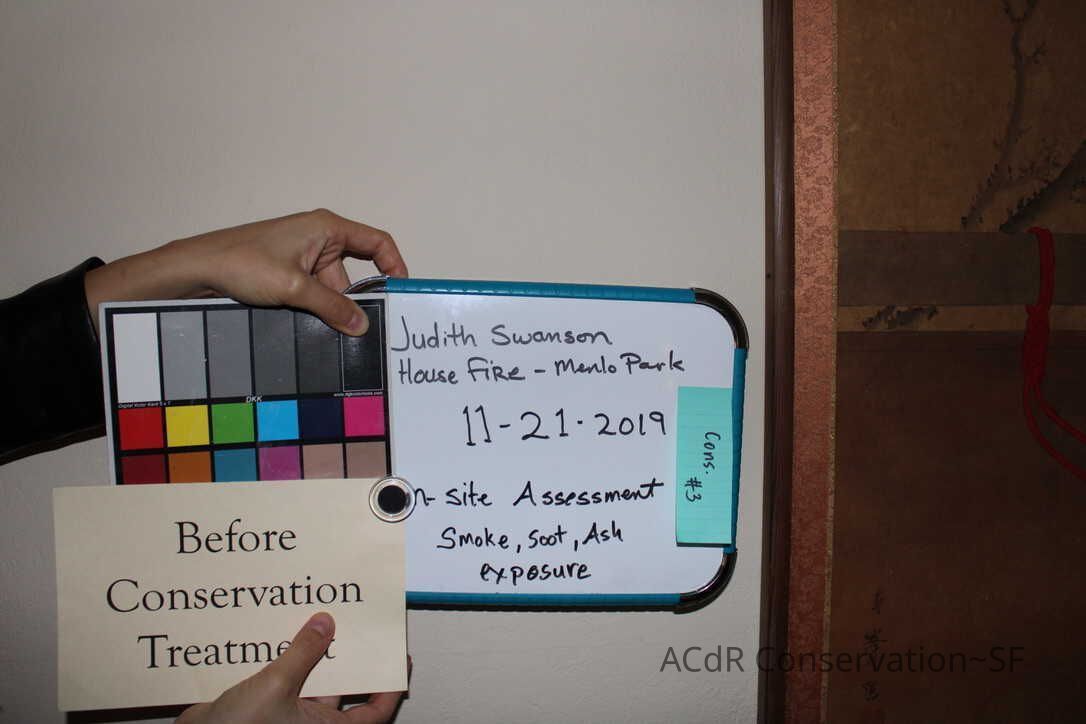 Judith Swanson
House Fire - Menlo Park
11-21-2019
n-site Assessment
Smoke, Soot, Ash
exposure
Cons. #3
Digital Kolor Kard 5 x 7
DKK
Before
Conservation
Treatment
ACdR Conservation~SF